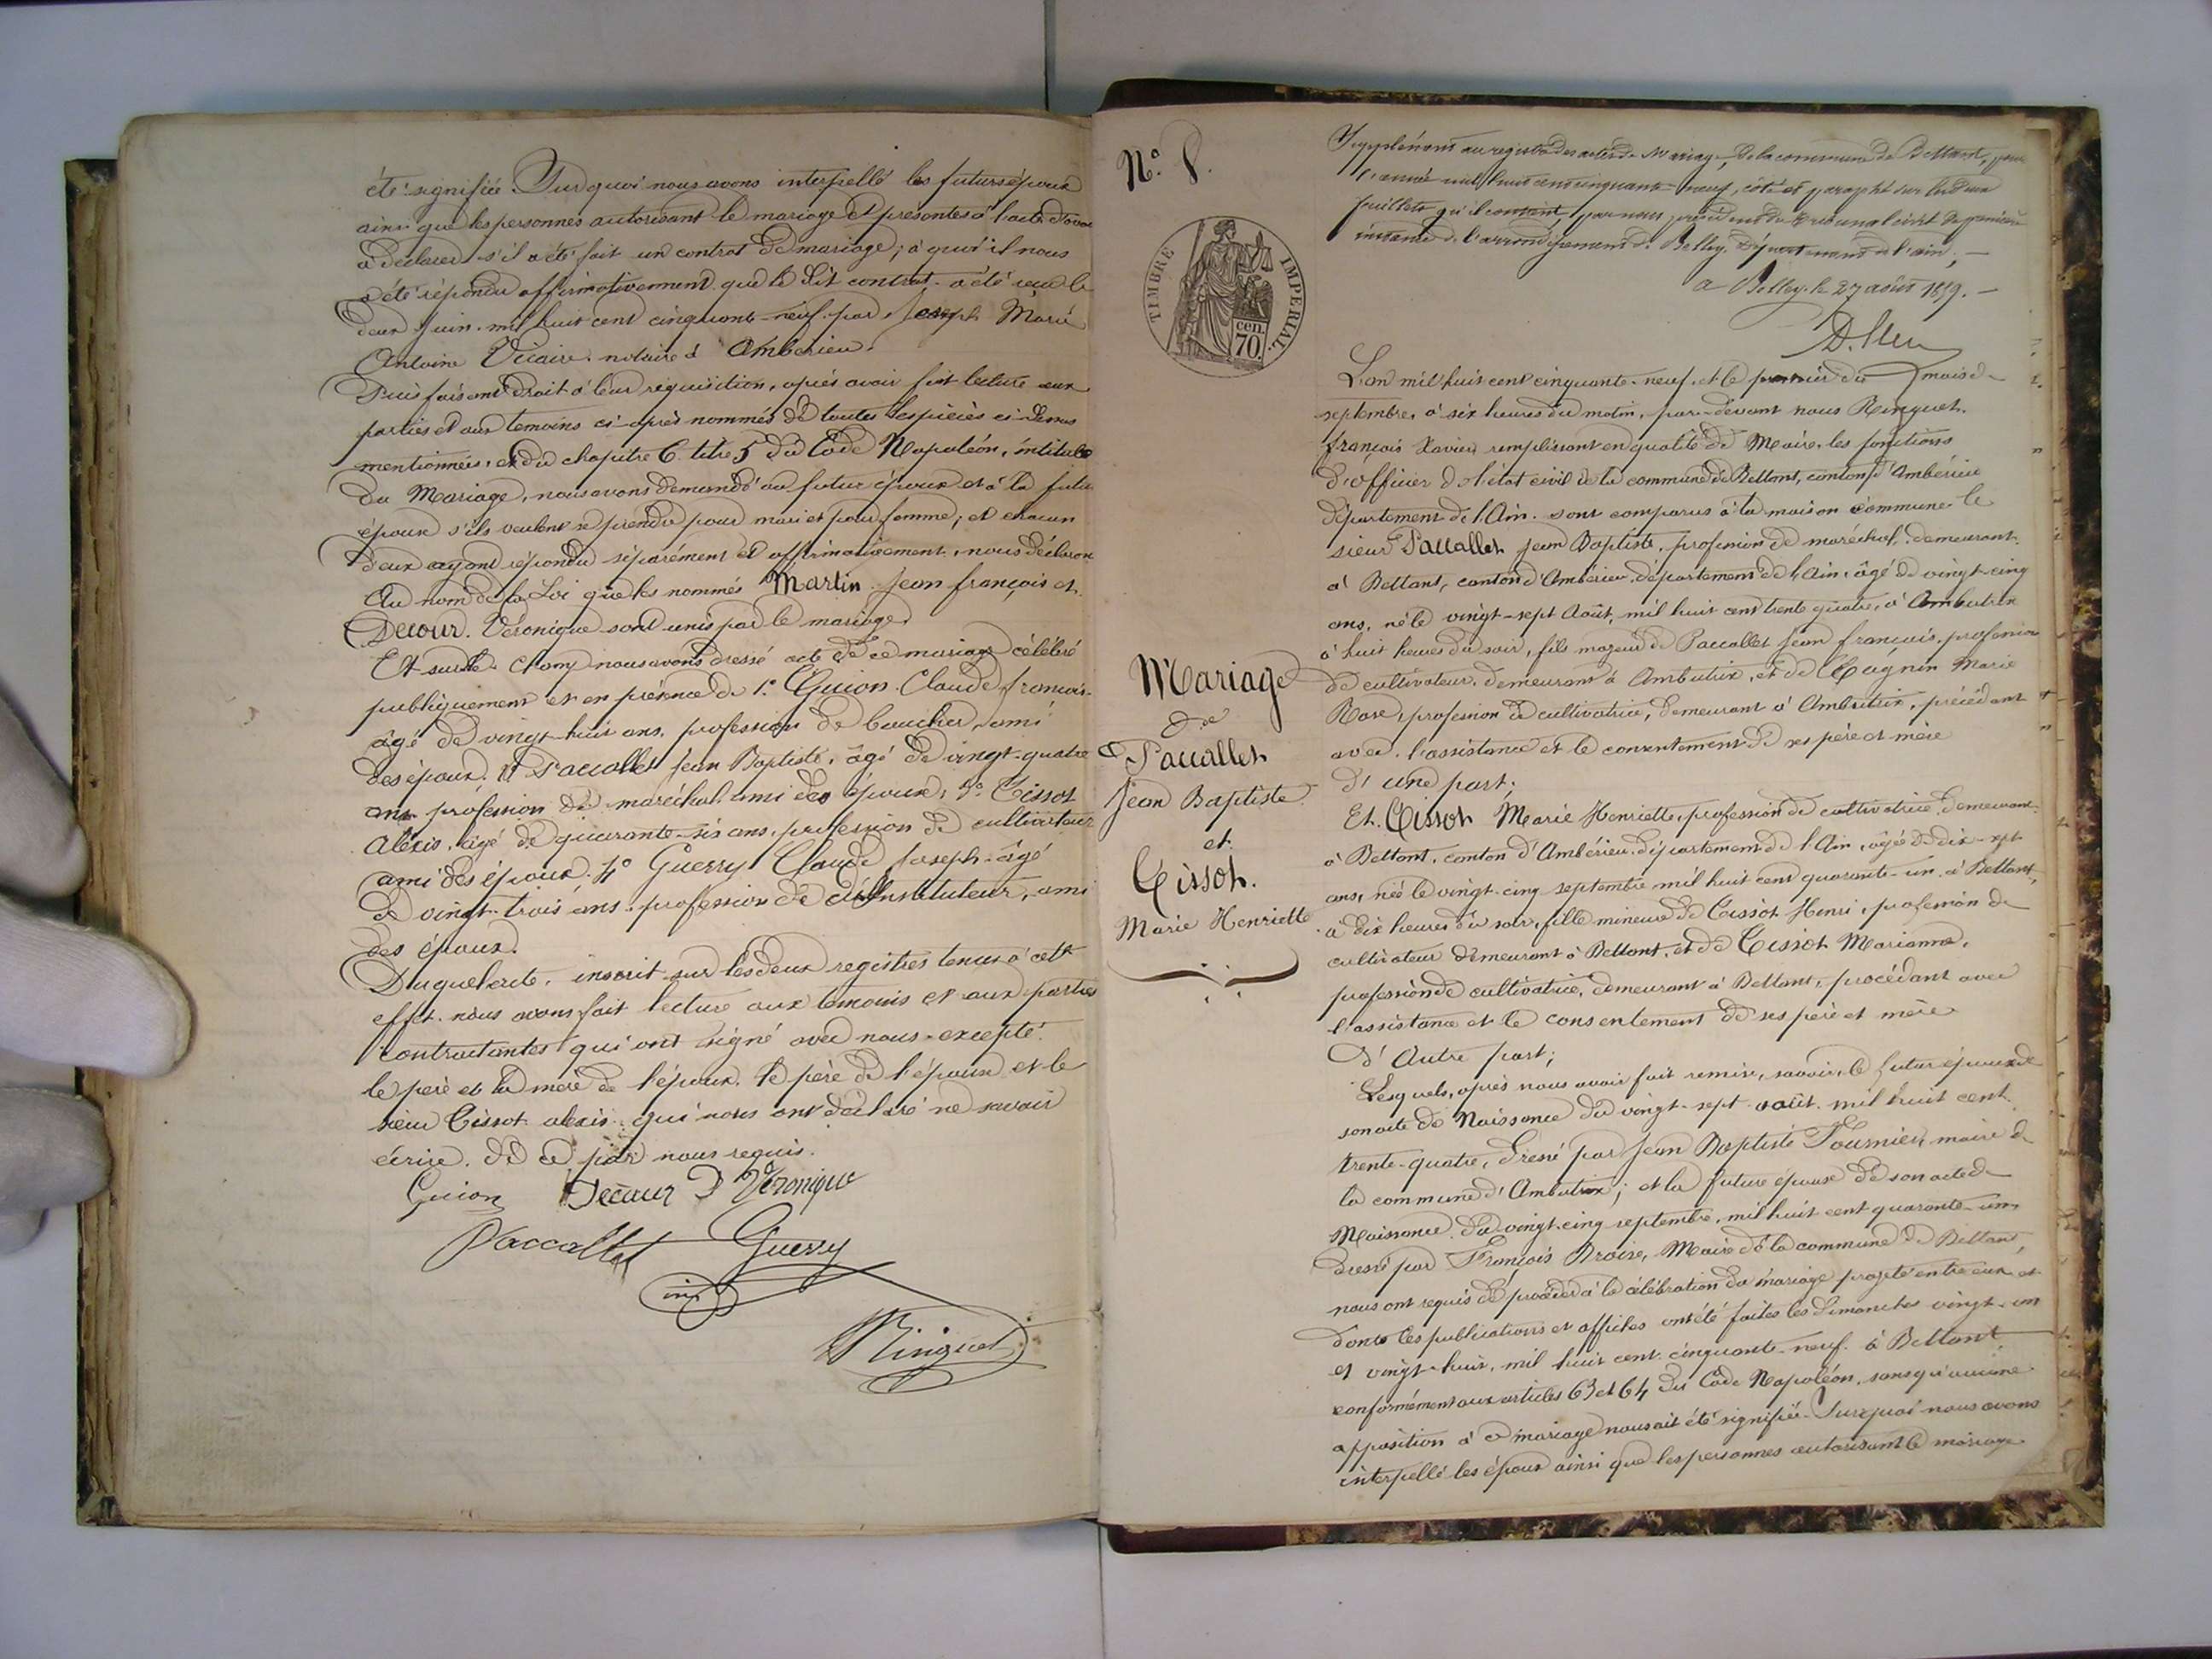 été signifiée. Sur quoi nous avons interpellé les futurs époux
ainsi que les personnes autorisant le mariage et présentes à l'acte d'avoir
à déclarer s'il a été fait un contrat de mariage; à quoi il nous
a été répondu affirmativement que le dit contrat a été reçu le
deux Juin mil huit cent cinquante-neuf par Joseph Marie
Antoine Vicaire notaire à Ambérieu.
Puis faisant droit à leur réquisition, après avoir fait lecture aux
parties et aux témoins ci-après nommés de toutes les pièces ci-dessus
mentionnées, et du chapitre 6 titre 5 du Code Napoléon, intitulé
du Mariage, nous avons demandé au futur époux et à la future
épouse s'ils veulent se prendre pour mari et pour femme; et chacun
d'eux ayant répondu séparément et affirmativement, nous déclarons
Au nom de la Loi que les nommés Martin Jean françois et
Decour Véronique sont unis par le mariage.
Et sur le champ nous avons dressé acte de ce mariage célébré
publiquement et en présence de 1° Guion Claude françois
âgé de vingt-huit ans, profession de boucher, ami
des époux; 2° Paccallet Jean Baptiste, âgé de vingt-quatre
ans profession de maréchal ami des époux; 3° Tissot
Alexis, âgé de quarante-six ans, profession de cultivateur
ami des époux 4° Guerry Claude Joseph âgé
de vingt-trois ans profession de Instituteur, ami
des époux.
Duquel acte, inscrit sur les deux registres tenus à cet
effet nous avons fait lecture aux témoins et aux parties
contractantes qui ont signé avec nous excepté
le père et la mère de l'époux, le père de l'épouse et le
sieur Tissot alexis qui nous ont déclaré ne savoir
écrire, de ce par nous requis.
Guion Decour Véronique
Paccallet Guerry
inst
Ringuet
N° 8.
Supplément au registre des actes de Mariage, de la commune de Bettant, pour
l'année mil huit cent cinquante neuf, côté et paraphé sur les deux
feuillets qu'il contient, par nous président du tribunal civil de première
instance de l'arrondissement de Belley, département de l'ain,
a Belley le 27 août 1859.
TIMBRE IMPERIAL
cen.
70
Mariage
de
Paccallet
Jean Baptiste
et
Tissot.
Marie Henriette
L'an mil huit cent cinquante-neuf et le premier du mois de
septembre, à six heures du matin, par-devant nous Ringuet
françois Xavier remplissant en qualité de Maire les fonctions
d'officier de l'état civil de la commune de Bettant, canton d'Ambérieu
département de l'Ain. sont comparus à la maison commune le
sieur Paccallet Jean Baptiste, profession de maréchal, demeurant
à Bettant, canton d'Ambérieu, département de l'Ain, âgé de vingt-cinq
ans, né le vingt-sept Août, mil huit cent trente quatre, à Ambutrix
à huit heures du soir, fils majeur de Paccallet Jean françois, profession
de cultivateur, demeurant à Ambutrix, et de Cagnin Marie
Rose, profession de cultivatrice, demeurant à Ambutrix, procédant
avec l'assistance et le consentement de ses père et mère
d'une part;
Et Tissot Marie Henriette, profession de cultivatrice, demeurant
à Bettant, canton d'Ambérieu, département de l'Ain, âgée de dix-sept
ans, née le vingt-cinq septembre mil huit cent quarante-un, à Bettant,
à dix heures du soir, fille mineure de Tissot Henri, profession de
cultivateur demeurant à Bettant, et de Tissot Marianne,
profession de cultivatrice, demeurant à Bettant, procédant avec
l'assistance et le consentement de ses père et mère
d'Autre part;
Lesquels, après nous avoir fait remise, savoir, le futur époux de
son acte de Naissance du vingt-sept août mil huit cent
trente-quatre, dressé par Jean Baptiste Tournier, maire de
la commune d'Ambutrix; et la future épouse de son acte de
Naissance du vingt-cinq septembre, mil huit cent quarante-un,
dressé par François Broise, Maire de la commune de Bettant,
nous ont requis de procéder à la célébration du mariage projeté entre eux et
dont les publications et affiches ont été faites les dimanches vingt-un
et vingt-huit, mil huit cent cinquante-neuf à Bettant
conformément aux articles 63 et 64 du Code Napoléon, sans qu'aucune
opposition à ce mariage nous ait été signifiée. Sur quoi nous avons
interpellé les époux ainsi que les personnes autorisant le mariage